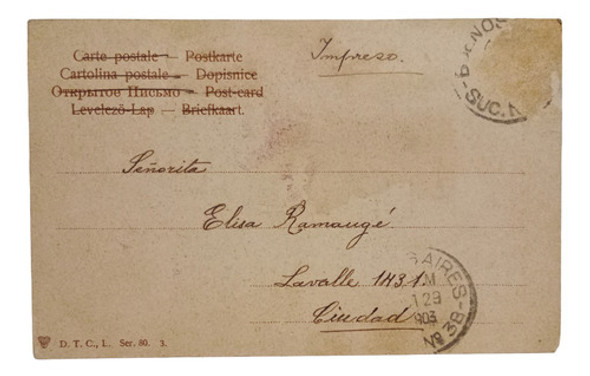 Carte postale — Postkarte
Cartolina postale — Dopisnice
Открытое Письмо — Post-card
Levelező-Lap — Briefkaart.
Impreso.
SUC.
Señorita
Elisa Ramaugé.
Lavalle 1431.
Ciudad
AIRES
M
29
903
Nº 38
D. T. C., L. Ser. 80. 3.